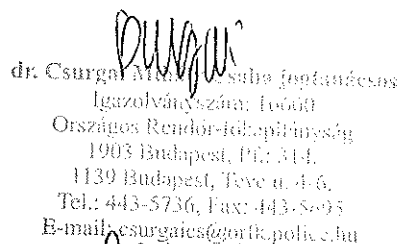 dr. Csurgai Csaba jogtanácsos
Igazolványszám: 16660
Országos Rendőr-főkapitányság
1903 Budapest, Pf.: 314.
1139 Budapest, Teve u. 4-6.
Tel.: 443-5736, Fax: 443-5
E-mail: csurgaics@orfk.police.hu